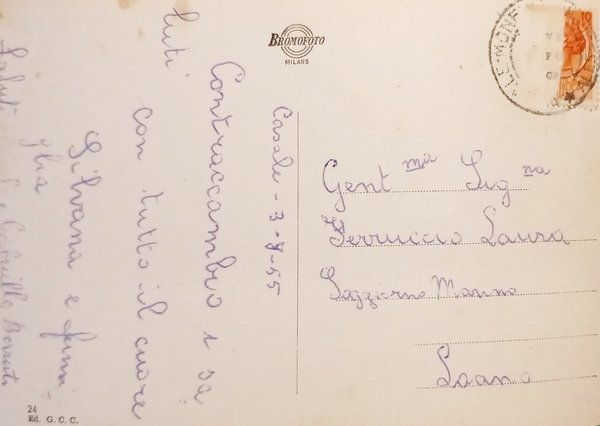 BROMOFOTO
MILANO
Casale - 3-8-55
Contraccambio i sa
luti con tutto il cuore
Silvana e fami-
glia
Saluti
Gent ma Sig na
Ferruccio Laura
Soggiorno Marino
Loano
24
Ed. G. C. C.